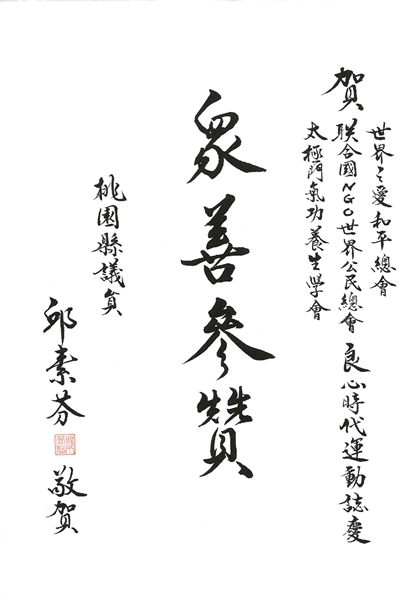 世界之愛和平總會
賀 联合國NGO世界公民總會 良心時代運動誌慶
太極門氣功養生學會
眾善參贊
桃園縣議員
邱素芬 敬賀